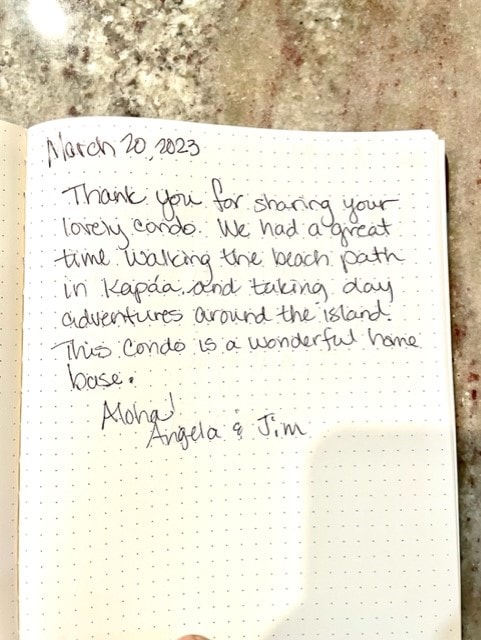 March 20, 2023
Thank you for sharing your
lovely condo. We had a great
time walking the beach path
in Kapáa and taking day
adventures around the island.
This condo is a wonderful home
base.
Aloha!
Angela & Jim